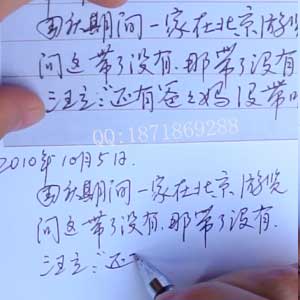 国庆期间一家在北京游览
问这带了没有.那带了没有
汪立:还有爸之妈没带
QQ:1871869288
2010年10月5日.
国庆期间一家在北京游览
问这带了没有.那带了没有.
汪立:还